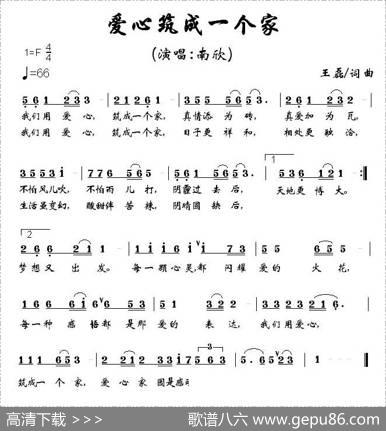 爱心筑成一个家
(演唱:南欣)
1=F 4/4
♩=66
王磊/词曲
5 6 1 2 3 3 - 2 1 2 6 1 - 3 5 5 5 5 6 5 - 2 3 2 1 2 -
我们用 爱心, 筑成一个家, 真情添 为 砖, 真爱加 为 瓦。
我们用 爱心, 筑成一个家, 日子更 祥 和, 相处更 融 洽,
3 5 5 3 i - 7 7 6 5 6 5 - 5 3 5 2 3 - 5 3 6 1 2 1 -
不怕风儿吹, 不怕雨 儿 打, 阴霾过 去 后, 天地更 博 大。
生活虽变幻, 酸甜伴 苦 辣, 阴晴圆 缺 后,
2
2 6 6 2 1 - 1 1 i i i 6 i 7 3 5 5 6 5
梦想又 出 发。 每一颗心灵,都 闪耀 爱的 火 花,
1 6 6 6 i 6 6 5 3 2 2 3 1 2 - 3 3 2 3 2 2 1 6 .
每一种 感 悟都 是那 爱的 表 达, 我们用爱心,
1 1 1 6 5 3 - 2 2 1 2 3 3 i 7 5 6 5 3 1 . 6 5 2 3 1 -
筑成一 个 家, 爱心 家 园是感
高清下载 >>>
歌谱八六 www.gepu86.com